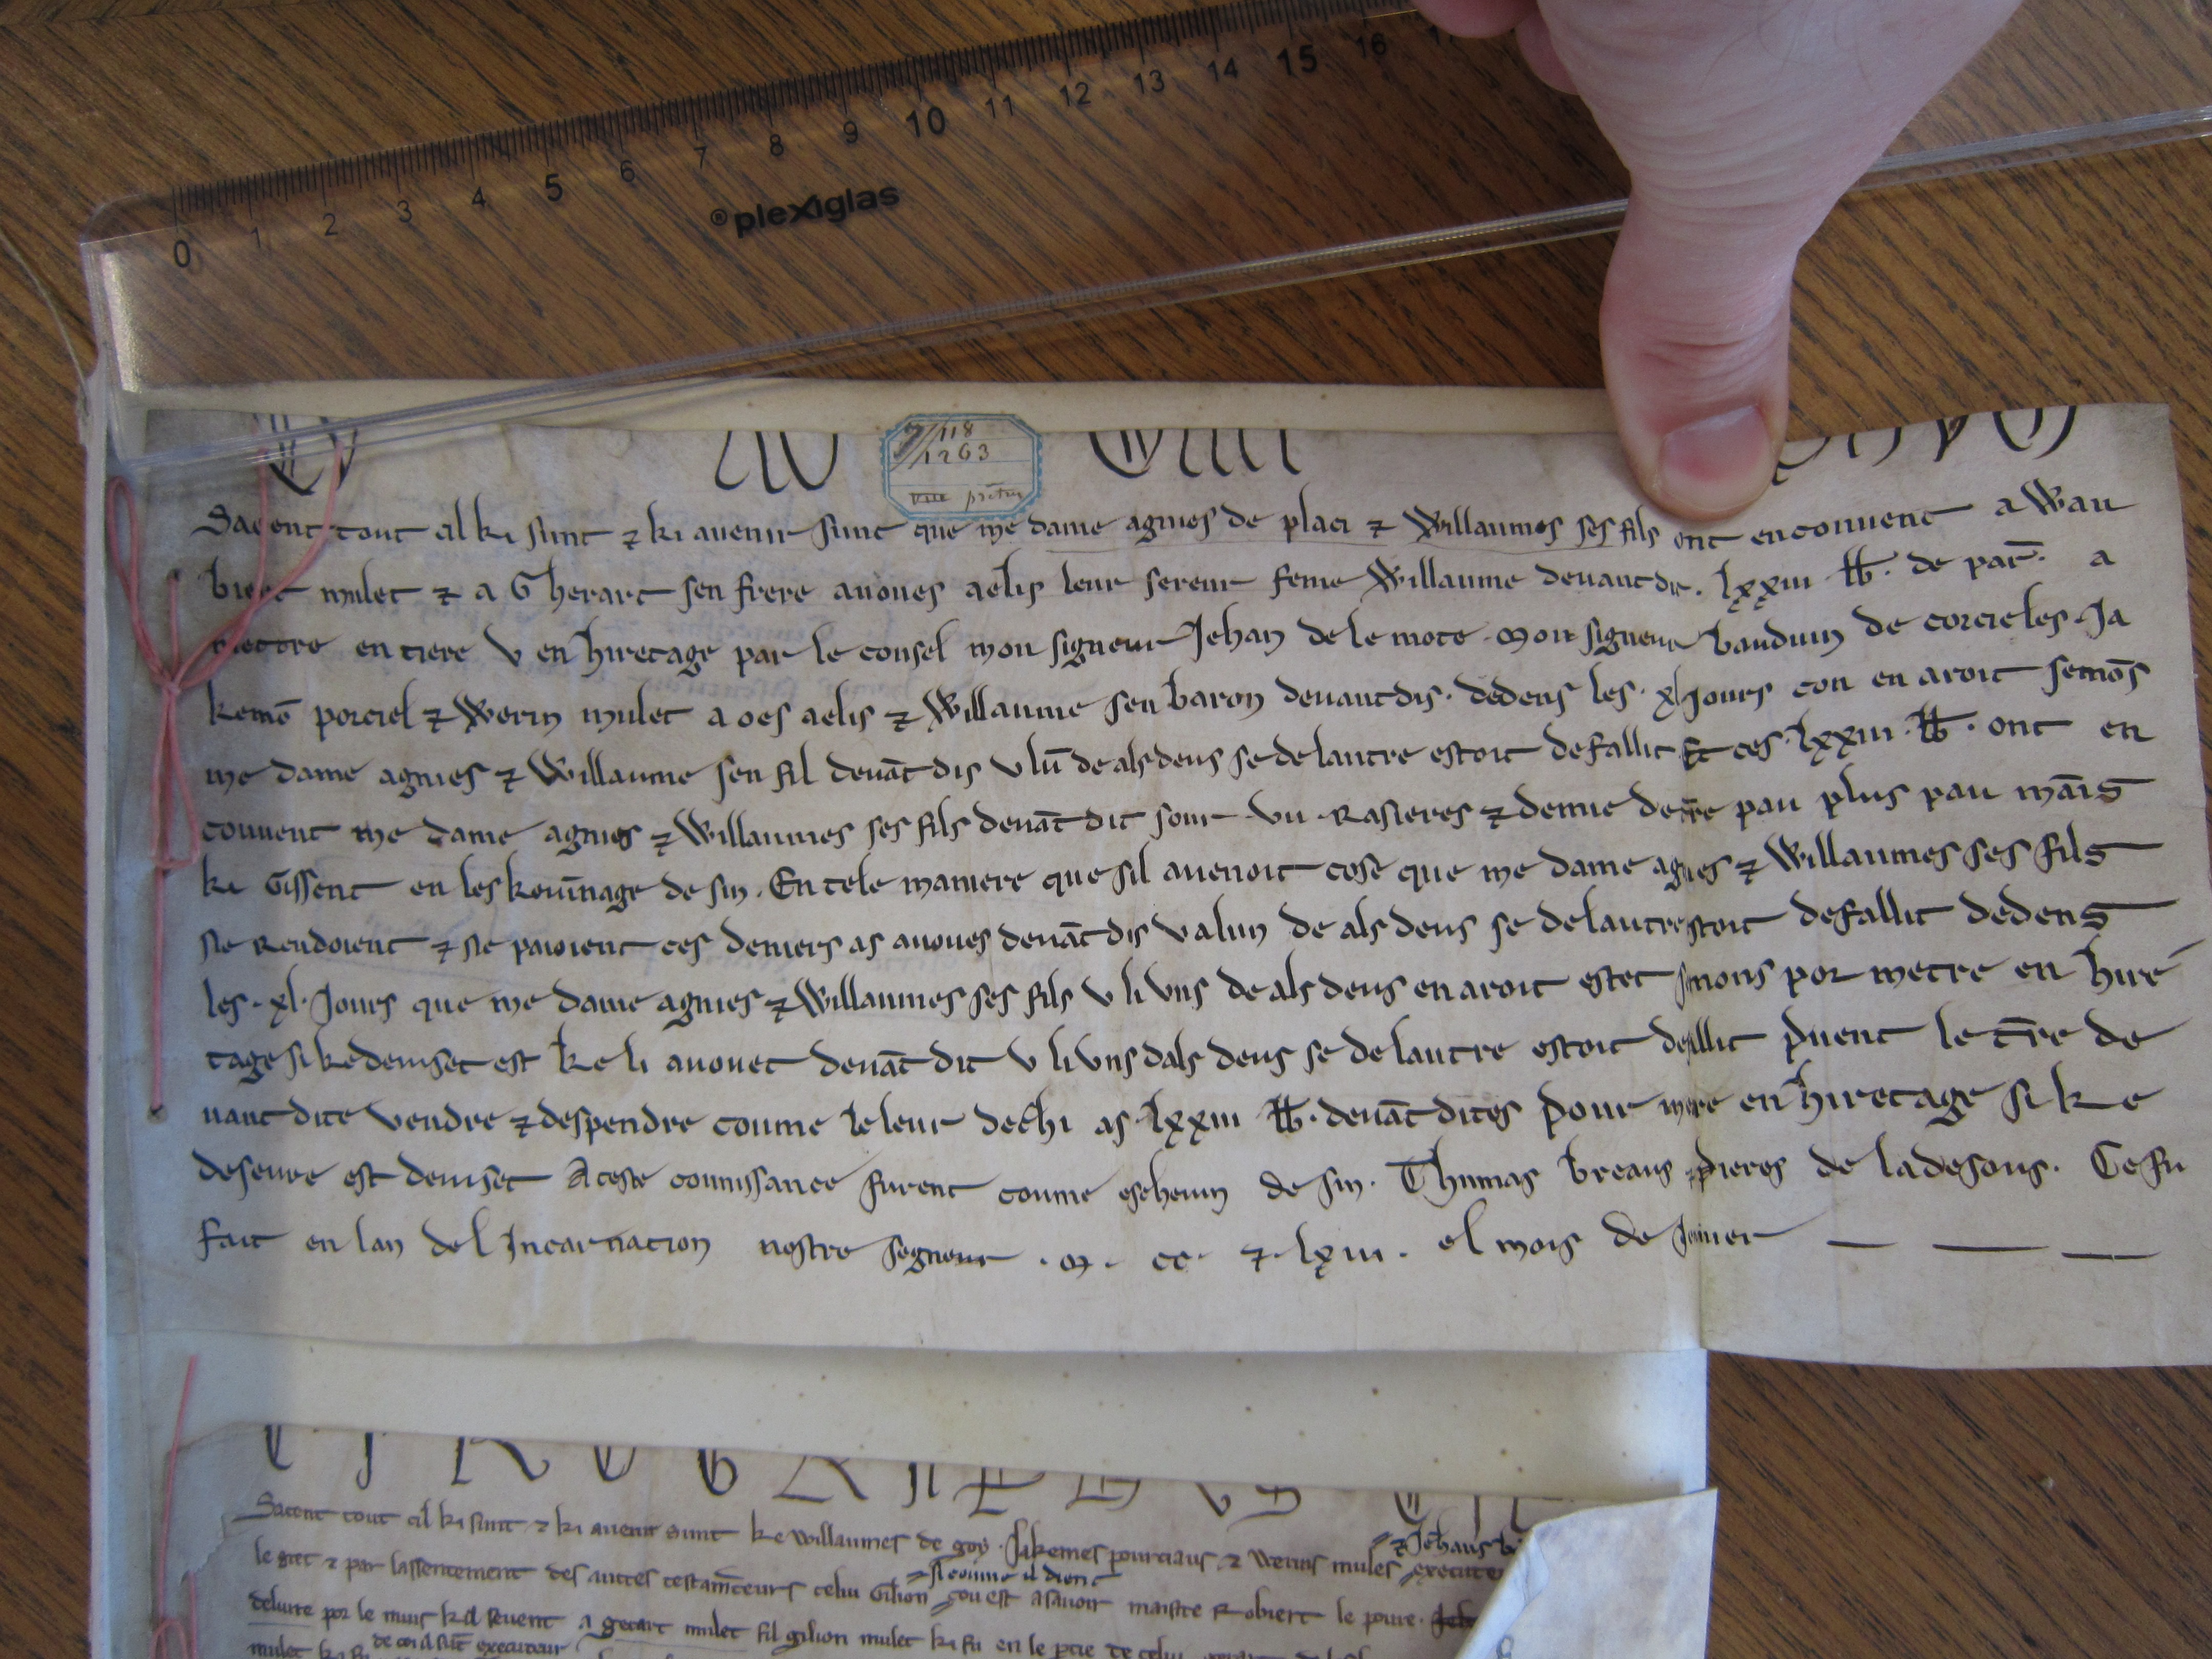 0 1 2 3 4 5 6 7 8 9 10 11 12 13 14 15 16
®plexiglas
118
1263
Sacent tout cil ki sunt ⁊ ki auenir sunt que me dame agnies de placi ⁊ Willaumes ses fils ont en conuent a Wau
biert mulet ⁊ a Gherart sen frere auoues aelis leur sereur feme Willaume deuant dit. lxxiii lb. de par̄. a
mettre en tiere v en hiretage par le consel mon signeur Jehan de le mote. Mon signeur bauduin de corcieles. Ja
kemō porciel ⁊ Werin mulet a oes aelis ⁊ Willaume sen baron deuant dis. dedens les. xl Jours con en aroit semōs
me dame agnies ⁊ Willaume sen fil deuāt dis v lū de als deus se de lautre estoit defallit Et ces. lxxiii. lb. ont en
couuent me dame agnies ⁊ Willaumes ses fils deuāt dit sour vii Rasieres ⁊ demie de t̄re pau plus pau māis
ki Gissent en leskeuinage de sin. En tele maniere que sil auenoit cose que me dame agnies ⁊ Willaumes ses fils
ne Rendoient ⁊ ne paioient ces deniers as auoues deuāt dis v a lun de als deus se de lautre estoit defallit dedens
les. xl. Jours que me dame agnies ⁊ Willaumes ses fils v li vns de als deus en aroit estet semons por metre en hire
tage si ke deuiset est ke li auouet deuāt dit v li vns dals deus se de lautre estoit defallit puent le t̄re de
uant dite vendre ⁊ despendre coume le leur dechi as. lxxiii lb. deuāt dites pour metre en hiretage si ke
deseure est deuiset A ceste counissance furent coume escheuin de sin. Thumas breaus ⁊ pieres de ladesous. Ce fu
fait en lan del Incarnacion nostre segneur. M. cc. ⁊. lxiii. el mois de Jenuier
CIROGRAPHUS
Sacent tout cil ki sunt ⁊ ki auenir sunt ke Willaumes de goy. Jakemes pourciaus ⁊ Werins mules execute
⁊ Jehans
le gret ⁊ par lassentement des autres testamēteurs celui Gilion cou est asauoir maistre Robiert le poure.
si coume il dient
deluire por le muis kil seuent a gerart mulet fil gilion mulet ki fu en le
mulet ki fu